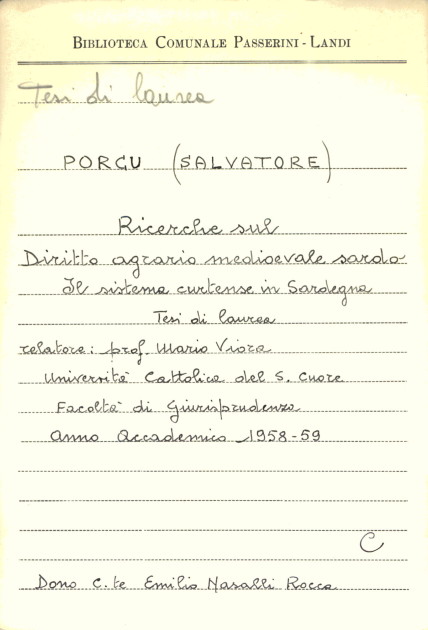 BIBLIOTECA COMUNALE PASSERINI - LANDI
Tesi di laurea
PORCU (SALVATORE)
Ricerche sul
Diritto agrario medioevale sardo
Il sistema curtense in Sardegna
Tesi di laurea
relatore: prof. Mario Viora
Università Cattolica del S. Cuore
Facoltà di Giurisprudenza
Anno Accademico 1958-59
C
Dono C.te Emilio Nasalli Rocca